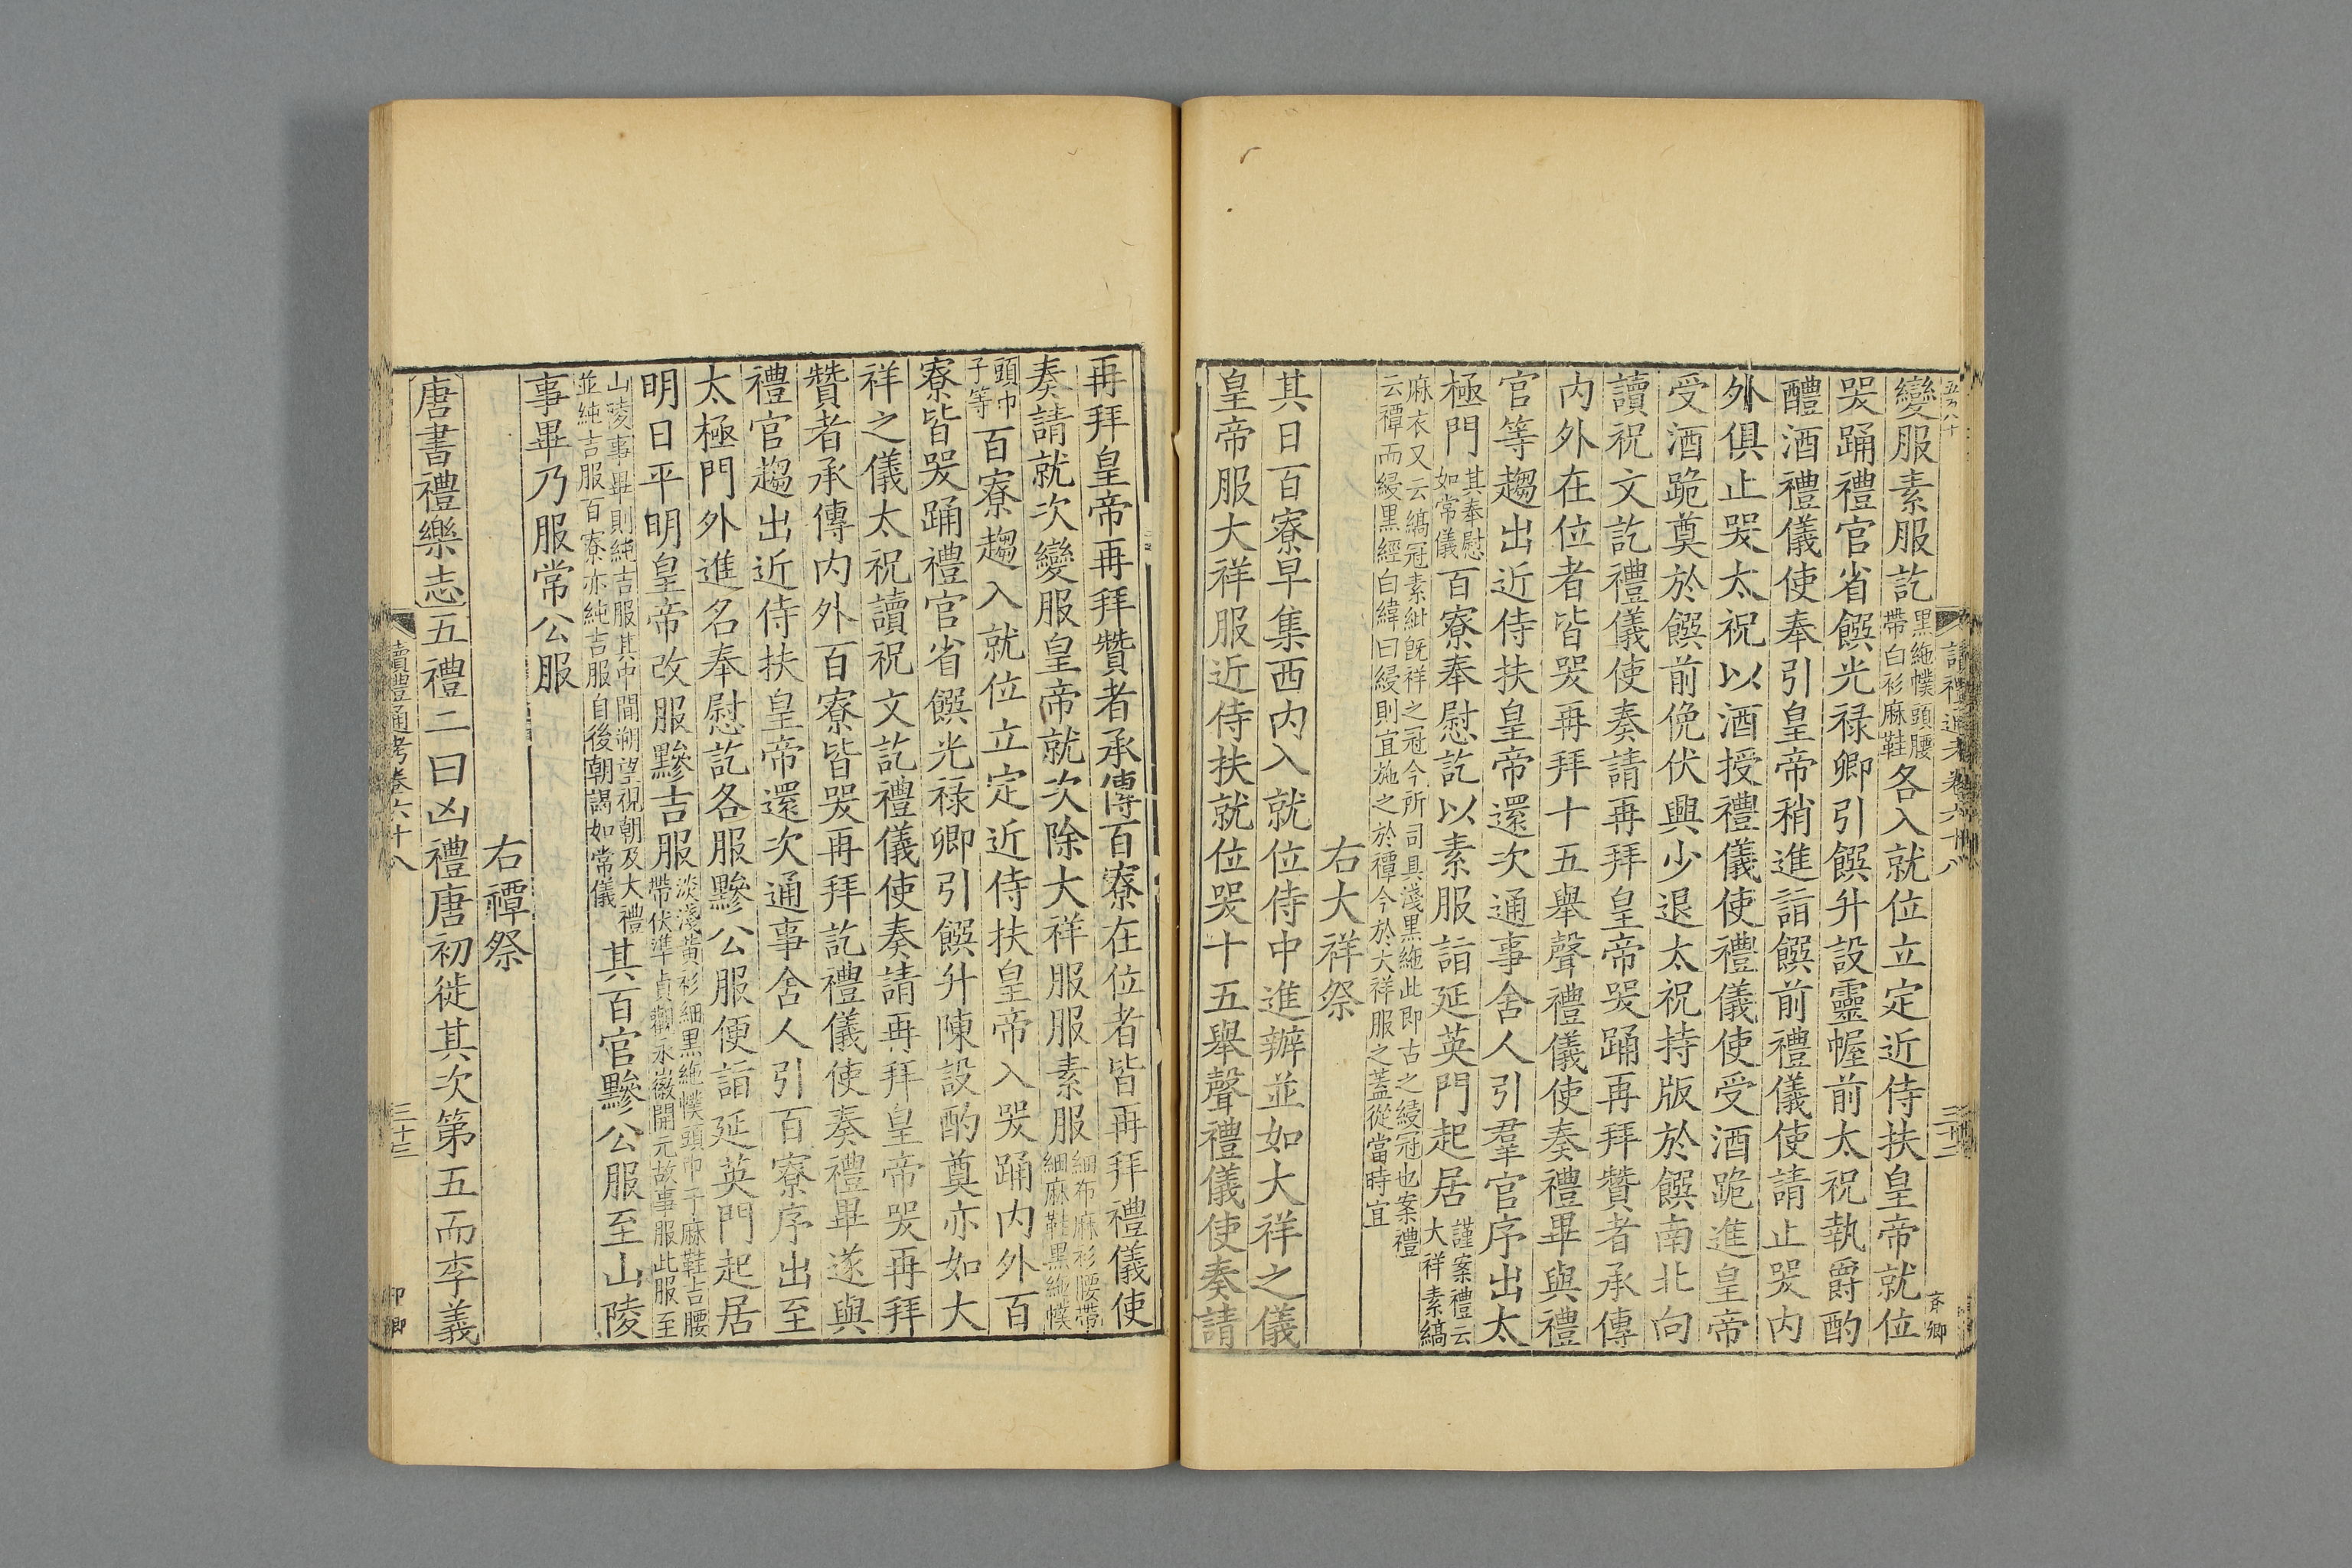 變服素服訖黑絁幞頭腰帶白衫麻鞋各入就位立定近侍扶皇帝就位
哭踊禮官省饌光祿卿引饌升設靈幄前太祝執爵酌
醴酒禮儀使奉引皇帝稍進詣饌前禮儀使請止哭内
外俱止哭太祝以酒授禮儀使禮儀使受酒跪進皇帝
受酒跪奠於饌前俛伏興少退太祝持版於饌南北向
讀祝文訖禮儀使奏請再拜皇帝哭踊再拜贊者承傳
内外在位者皆哭再拜十五舉聲禮儀使奏禮畢與禮
官等趨出近侍扶皇帝還次通事舍人引羣官序出太
極門其奉慰如常儀百寮奉慰訖以素服詣延英門起居謹案禮云大祥素縞
麻衣又云縞冠素紕旣祥之冠今所司具淺黑絁此即古之綅冠也案禮
云禫而綅黑經白緯曰綅則宜施之於禫今於大祥服之蓋從當時宜
右大祥祭
其日百寮早集西内入就位侍中進辦並如大祥之儀
皇帝服大祥服近侍扶就位哭十五舉聲禮儀使奏請
再拜皇帝再拜贊者承傳百寮在位者皆再拜禮儀使
奏請就次變服皇帝就次除大祥服服素服細布麻衫腰帶細麻鞋黑絁幞
頭巾子等百寮趨入就位立定近侍扶皇帝入哭踊内外百
寮皆哭踊禮官省饌光祿卿引饌升陳設酌奠亦如大
祥之儀太祝讀祝文訖禮儀使奏請再拜皇帝哭再拜
贊者承傳内外百寮皆哭再拜訖禮儀使奏禮畢遂與
禮官趨出近侍扶皇帝還次通事舍人引百寮序出至
太極門外進名奉慰訖各服黲公服便詣延英門起居
明日平明皇帝改服黲吉服淡淺黃衫細黑絁幞頭巾子麻鞋吉腰帶伏準貞觀永徽開元故事服此服至
山陵事畢則純吉服其中間朔望視朝及大禮並純吉服百寮亦純吉服自後朝謁如常儀其百官黲公服至山陵
事畢乃服常公服
右禫祭
唐書禮樂志五禮二曰凶禮唐初徙其次第五而李義
讀禮通考卷六十八
三十三